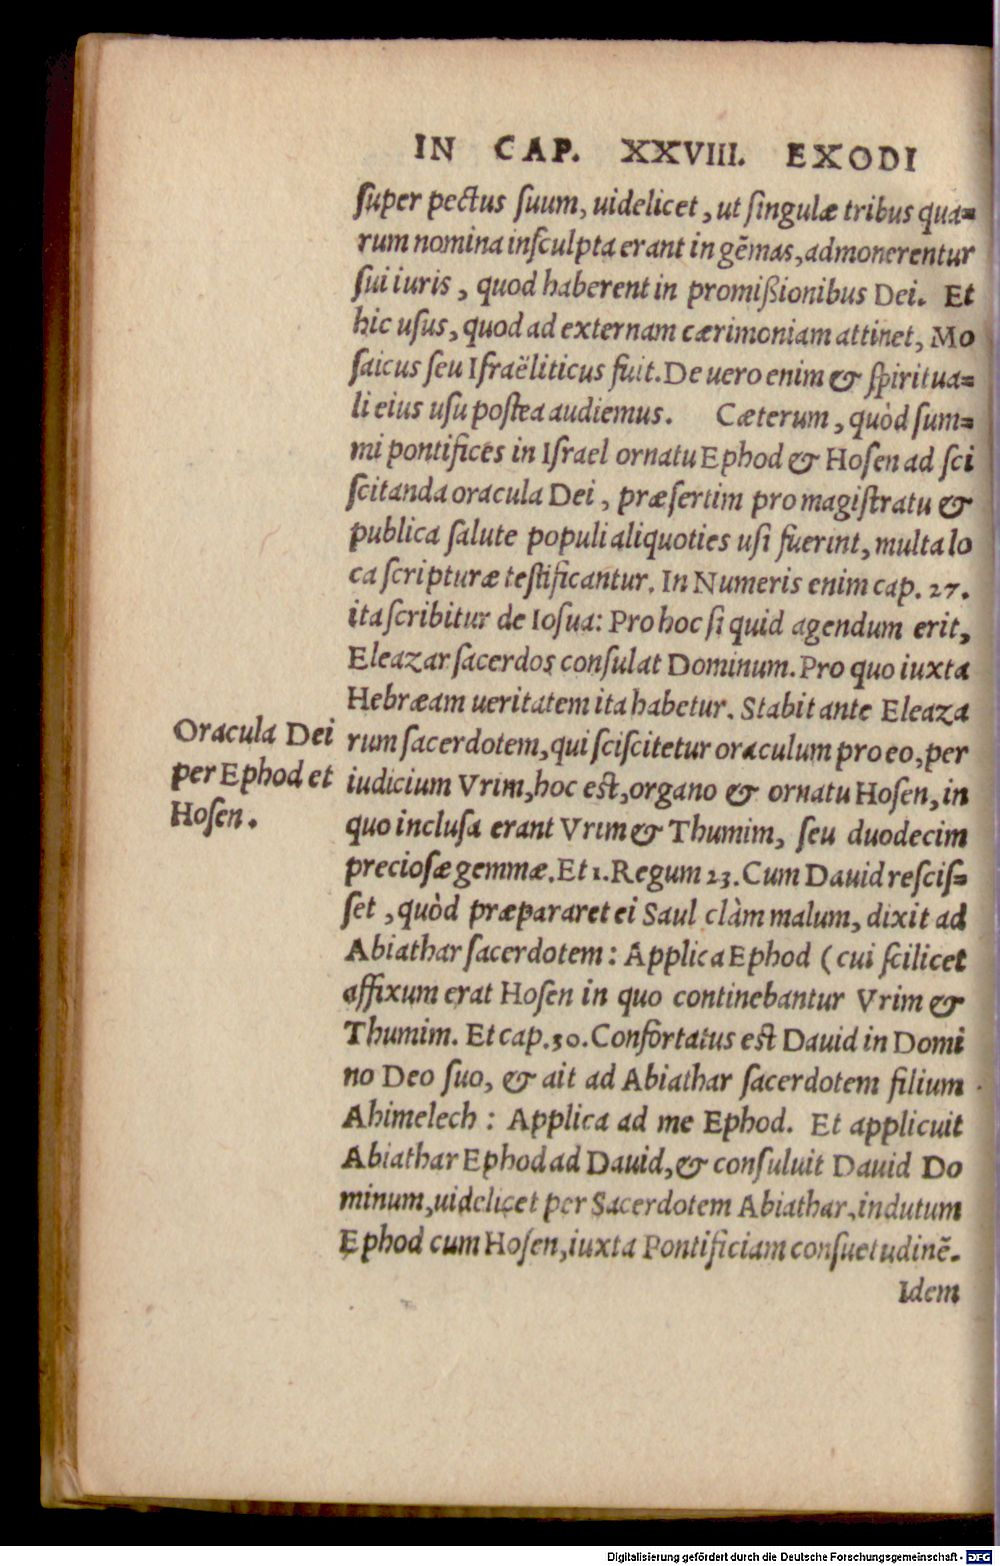 IN CAP. XXVIII. EXODI
ſuper pectus ſuum, uidelicet, ut ſingulæ tribus qua=
rum nomina inſculpta erant in gẽmas, admonerentur
ſui iuris, quod haberent in promißionibus Dei. Et
hic uſus, quod ad externam cærimoniam attinet, Mo
ſaicus ſeu Iſraëliticus fuit. De uero enim & ſpiritua=
li eius uſu poſtea audiemus. Cæterum, quòd ſum=
mi pontifices in Iſrael ornatu Ephod & Hoſen ad ſci
ſcitanda oracula Dei, præſertim pro magiſtratu &
publica ſalute populi aliquoties uſi fuerint, multa lo
ca ſcripturæ teſtificantur. In Numeris enim cap. 27.
ita ſcribitur de Ioſua: Pro hoc ſi quid agendum erit,
Eleazar ſacerdos conſulat Dominum. Pro quo iuxta
Hebræam ueritatem ita habetur. Stabit ante Eleaza
Oracula Dei
per Ephod et
Hoſen.
rum ſacerdotem, qui ſciſcitetur oraculum pro eo, per
iudicium Vrim, hoc est, organo & ornatu Hoſen, in
quo incluſa erant Vrim & Thumim, ſeu duodecim
precioſæ gemmæ. Et 1. Regum 23. Cum Dauid reſciſ=
ſet, quòd præpararet ei Saul clàm malum, dixit ad
Abiathar ſacerdotem: Applica Ephod (cui ſcilicet
affixum erat Hoſen in quo continebantur Vrim &
Thumim. Et cap. 30. Confortatus est Dauid in Domi
no Deo ſuo, & ait ad Abiathar ſacerdotem filium
Ahimelech: Applica ad me Ephod. Et applicuit
Abiathar Ephod ad Dauid, & conſuluit Dauid Do
minum, uidelicet per Sacerdotem Abiathar, indutum
Ephod cum Hoſen, iuxta Pontificiam conſuetudinẽ.
Idem
Digitalisierung gefördert durch die Deutsche Forschungsgemeinschaft - DFG